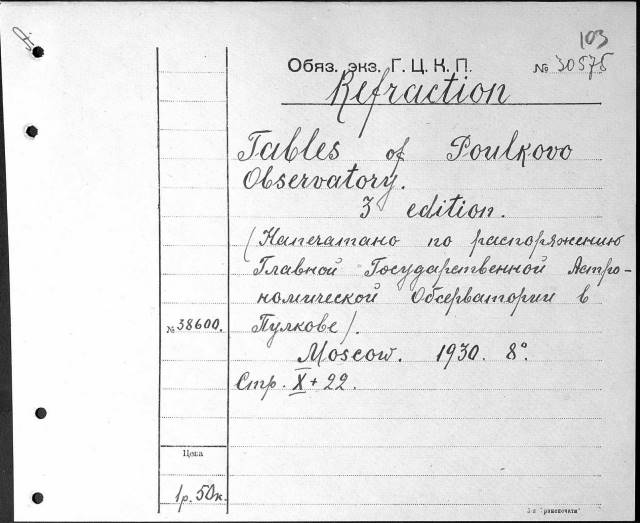 103
Обяз. экз. Г. Ц. К. П. № 30575
Refraction
Tables of Poulkovo
Observatory.
3 edition.
(Напечатано по распоряжению
Главной Государственной Астро-
номической Обсерватории в
№ 38600. Пулкове).
Moscow. 1930. 8°.
Стр. X + 22.
Цена
1 р. 50 к.